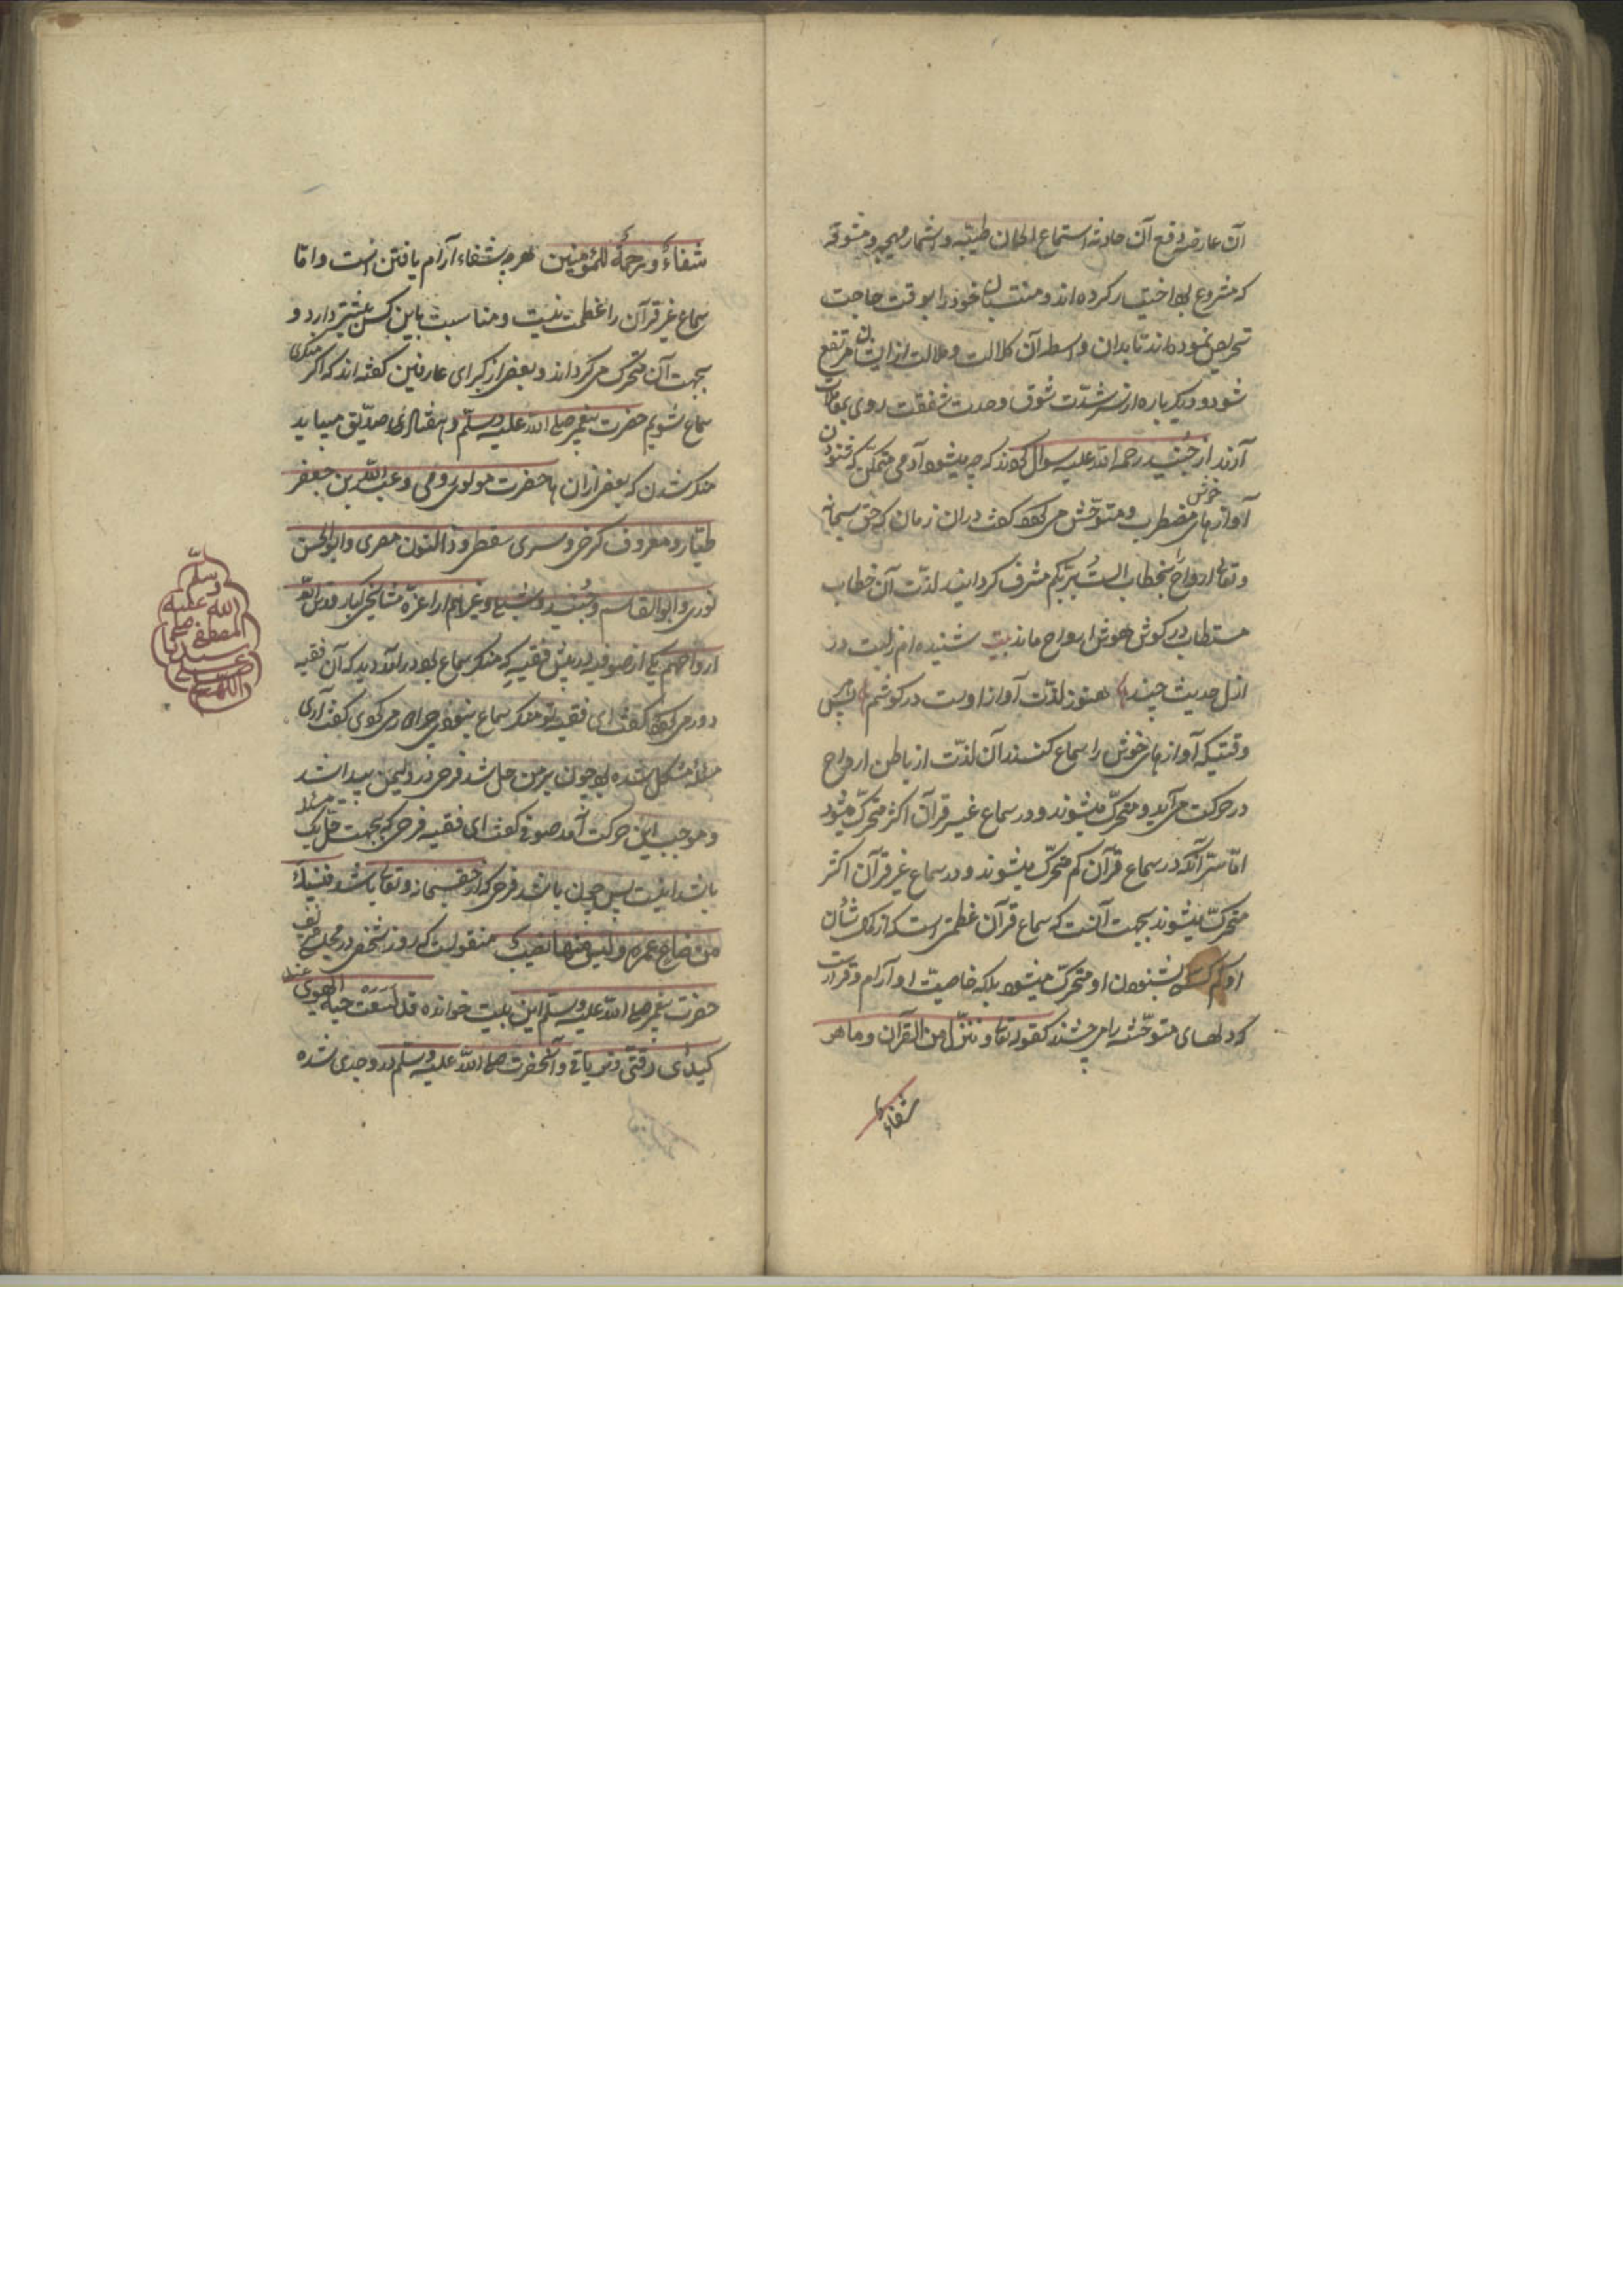 آن عارضه و رفع آن حادثه استماع الحان طیّبه و اشعار مهیّجه و مشوّقه
که مشروع بود اختیار کرده‌اند و منتسبان خود را بوقت حاجت
تحریص نموده‌اند تا بدان واسطه آن کلالت و ملالت از ایشان مرتفع
شود و دیگر باره از سر شدّت شوق و حدت شفقت روی بمعاملات
آرند از جُنید رحمه الله علیه سوال کردند که چه میشود آدمی متمکّن که شنودن
آواز های خوش مضطرب و متوحّش می‌گردد گفت دران زمان که حق سبحانه
و تعالی ارواح را بخطاب الستُ بربّکم مشرف گردانید لذّت آن خطاب
مستطاب در گوش هوش ارواح ماند بیت شنیده‌ام زلبت در
ازل حدیث چند هنوز لذّت آواز اوست در گوشم پس
وقتیکه آواز های خوش را سماع کنند آن لذّت از باطن ارواح
در حرکت می‌آید و متحرّک میشوند و در سماع غیر قرآن اکثر متحرّک میشود
امّا سرّ آنکه در سماع قرآن کم متحرّک میشوند و در سماع غیر قرآن اکثر
متحرّک میشوند بجهت آنست که سماع قرآن عظمتی است که از کمال شأن
او کم کسی بشنودن او متحرّک میشود بلکه خاصیّت او آرام و قرارست
که دلهای متوحّشه را می‌بخشند کقوله تعالی و ننزّل من القرآن و ما هو
شفاءٌ
شفاءٌ ورحمةٌ للمؤمنین ثمره شفاء آرام یافتن است و امّا
سماع غیر قرآن را عظمت نیست و مناسبت باین کس بیشتر دارد و
بجهت آن متحرّک می‌گرداند و بعض از کبرای عارفین گفته‌اند که اگر منکری
سماع شویم حضرت پیغمبر صلی الله علیه وسلّم و هفتاد صدّیق میباید
منکر شدن که بعض ازان ها حضرت مولوی رومی و عبد الله بن جعفر
طیّار و معروف کرخی و سری سقطی و ذالنون مصری و ابو الحسن
نوری و ابوالقاسم و جُنید و شبلی و غیرهم از اعزّه مشایخ کبار قدس الله
ارواحهم یکی از صوفیه در پیش فقیه که منکر سماع بود در آمد دید که آن فقیه
دور می‌گردد گفت ای فقیه تو منکر سماع میشوی چرا دور می‌گردی گفت آری
مسئله مشکل شده بود چون بر من حل شد فرحی در دلمن پیدا شد
و موجب این حرکت آمد صوفی گفت ای فقیه فرحی که بجهت حلّ یک مسئله
باشد اینست پس چسان باشد فرحی که از حق سبحانه و تعالی باشد و فلیبک
من ضاع عمره ولیس فیها نصیب منقولست که روزی شخصی در مجلس شریف
حضرت پیغمبر صلی الله علیه وسلّم این بیت خوانده قد لسعت حیة الهوی
کبدی رقتی و تریاقی و آنحضرت صلی الله علیه وسلّم در وجدی شده
اللهم صلی
علی سیدنا
المصطفی صلی
الله علیه
وسلم